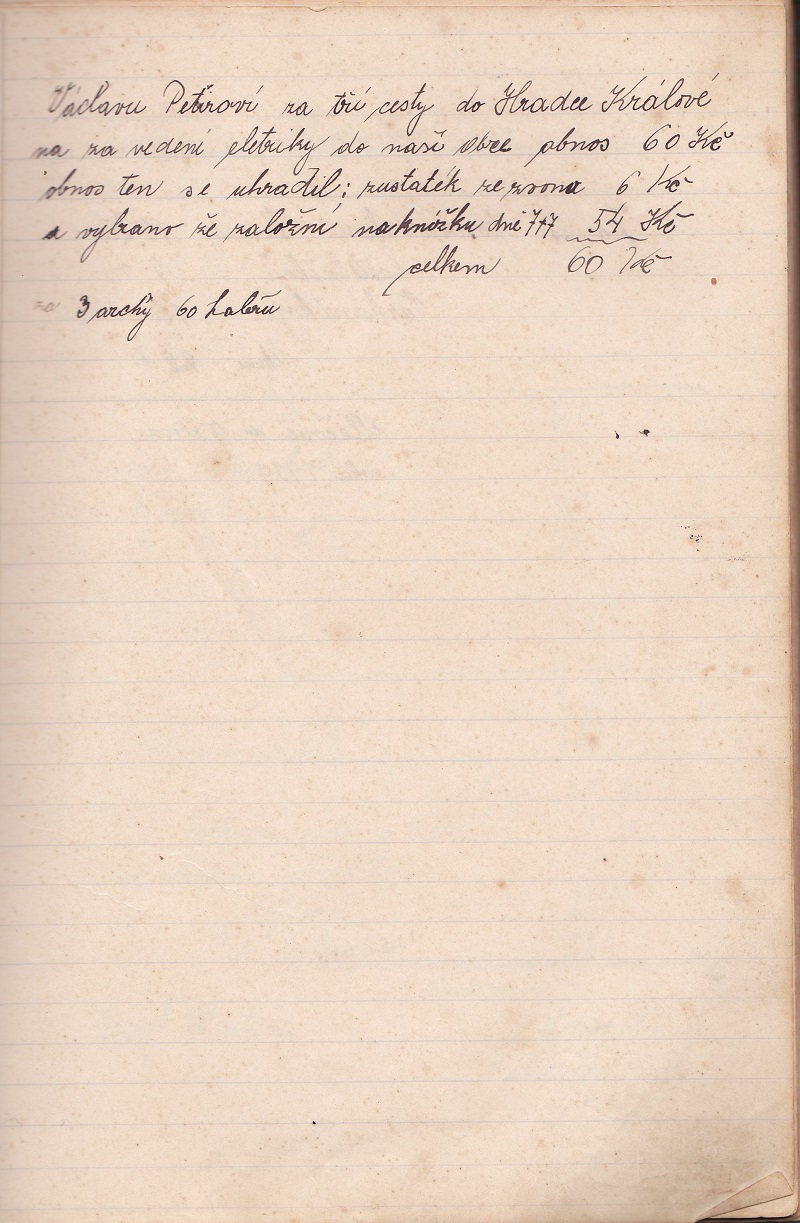 Václavu Petirovi za tří cesty do Hradce Králové
na za vedení eletriky do naší obce obnos 60 Kč
obnos ten se uhradil; zustaték ze zvona 6 Kč
a vybrano že založní na knížku dně 7+7 54 Kč
celkem 60 Kč
za 3 archy 60 haléřu